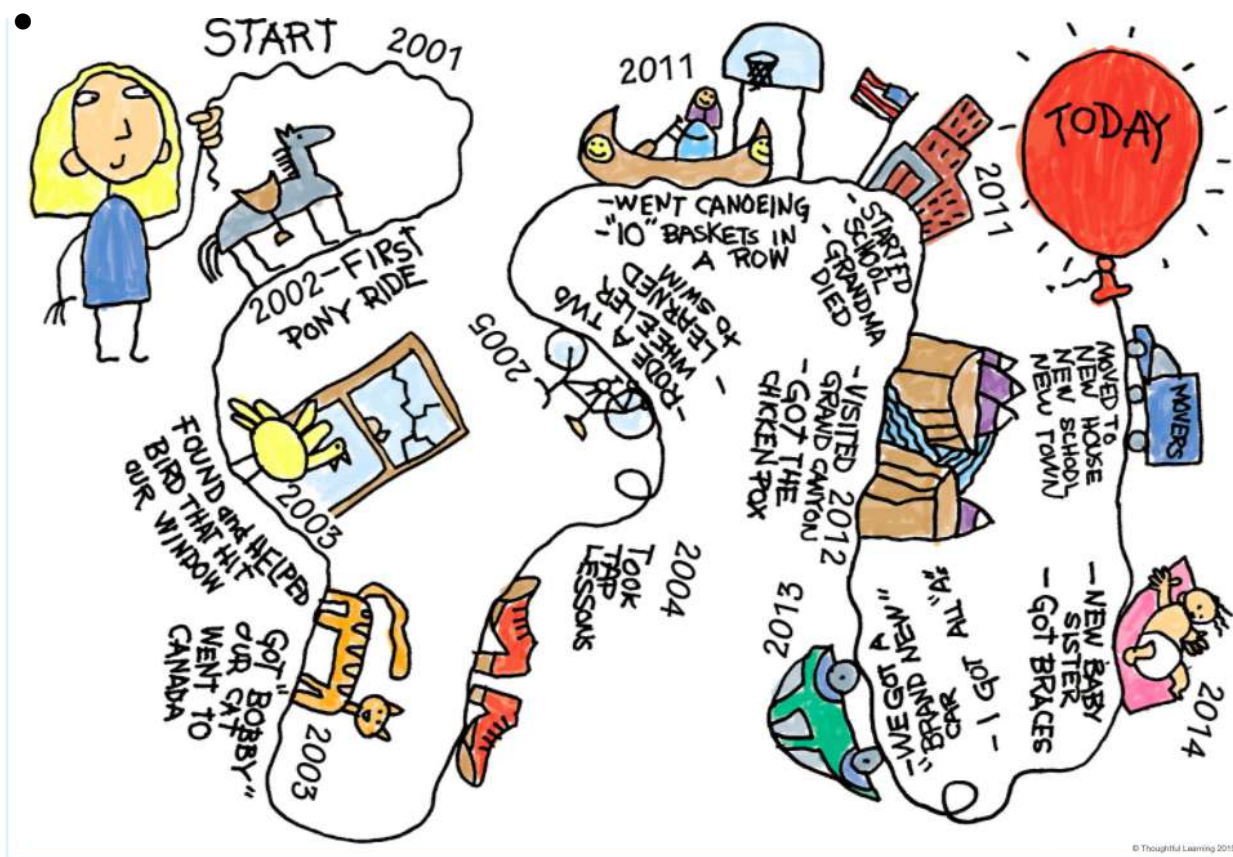 START
2001
2002-FIRST
PONY RIDE
2003
FOUND and HELPED
BIRD THAT HIT
OUR WINDOW
2003
GOT "BOBBY"
OUR CAT
WENT TO
CANADA
2004
TOOK
TAP
LESSONS
2005
-RODE A TWO
WHEELER
- LEARNED
TO SWIM
2011
-WENT CANOEING
-"10" BASKETS IN
A ROW
2011
-STARTED
SCHOOL
-GRANDMA
DIED
2012
-VISITED
GRAND CANYON
-GOT THE
CHICKEN POX
2013
-WE GOT A
"BRAND NEW"
CAR
- I GOT ALL "A's"
2014
-NEW BABY
SISTER
-GOT BRACES
MOVED TO
NEW HOUSE
NEW SCHOOL
NEW TOWN
MOVERS
TODAY
© Thoughtful Learning 2015